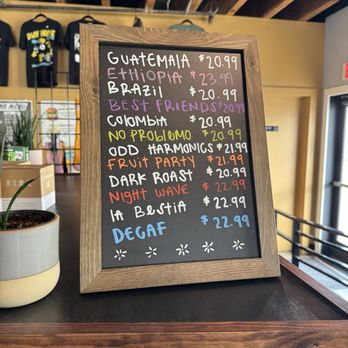 GUATEMALA $20.99
ETHIOPIA $23.99
BRAZIL $20.99
BEST FRIENDS $20.99
COLOMBIA $20.99
NO PROBLEMO $20.99
ODD HARMONICS $21.99
FRUIT PARTY $21.99
DARK ROAST $20.99
NIGHT WAVE $22.99
LA BESTIA $22.99
DECAF $22.99